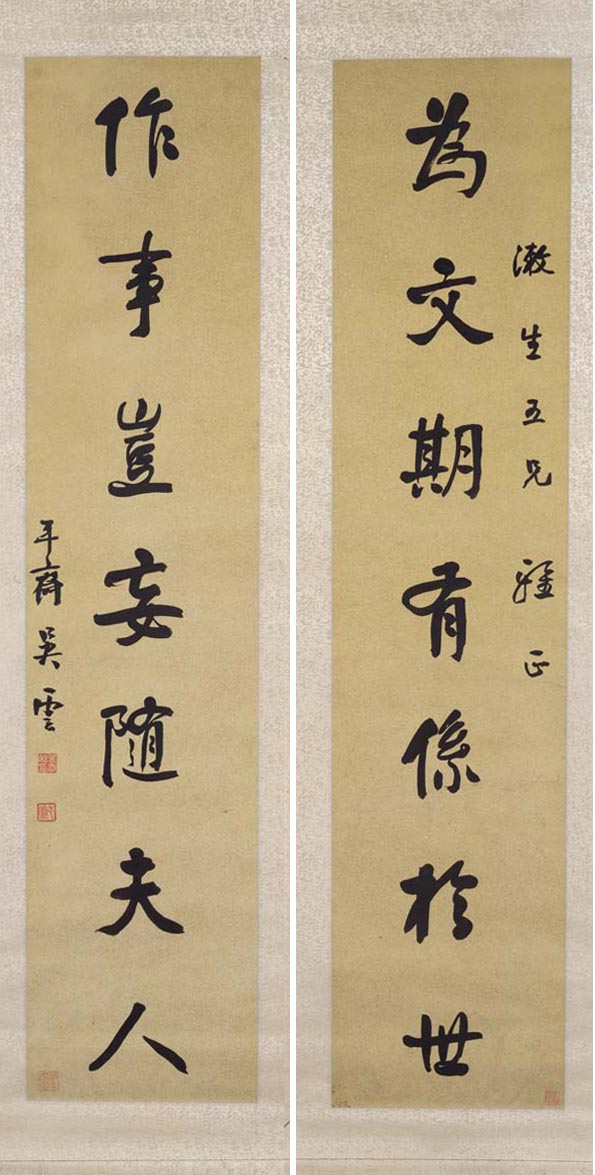 漱生五兄 正
為文期有係於世
作事豈妄隨夫人
平齋吳雲